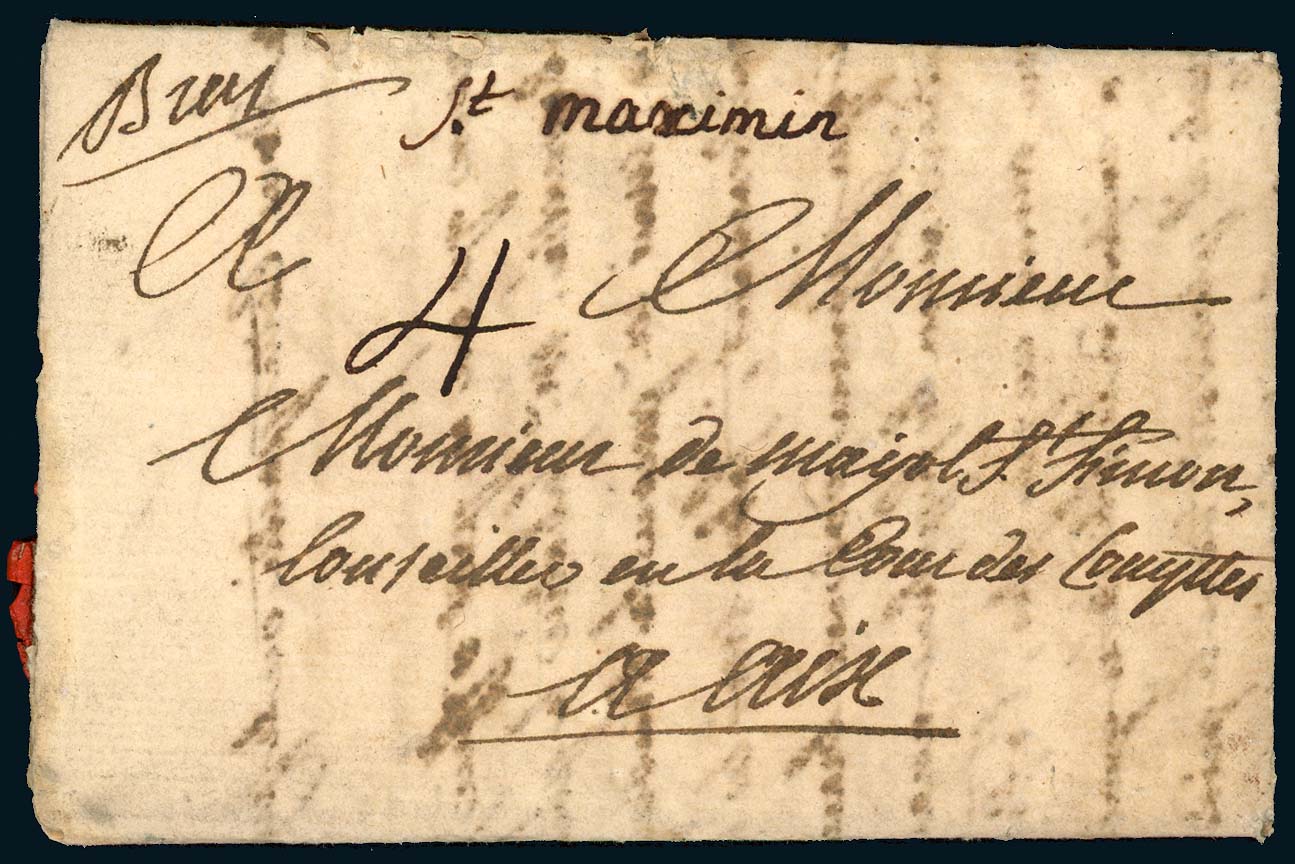 Brey St maximin
A
4 Monsieur
Monsieur de mayol St Simon,
Conseiller en la Cour des Comptes
A Aix